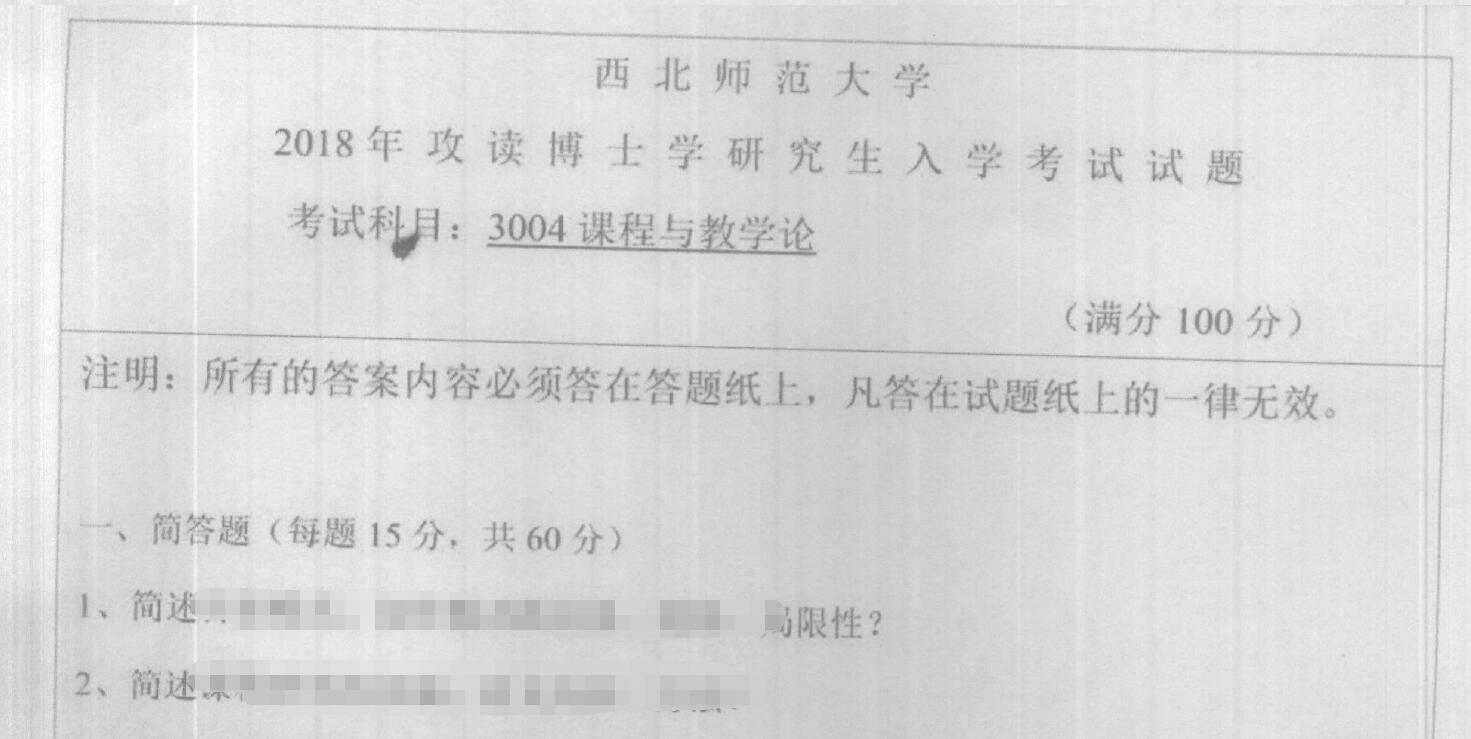 西北师范大学
2018年攻读博士学研究生入学考试试题
考试科目：3004课程与教学论
（满分 100 分）
注明：所有的答案内容必须答在答题纸上，凡答在试题纸上的一律无效。
一、简答题（每题 15 分，共 60 分）
1、简述 局限性？
2、简述